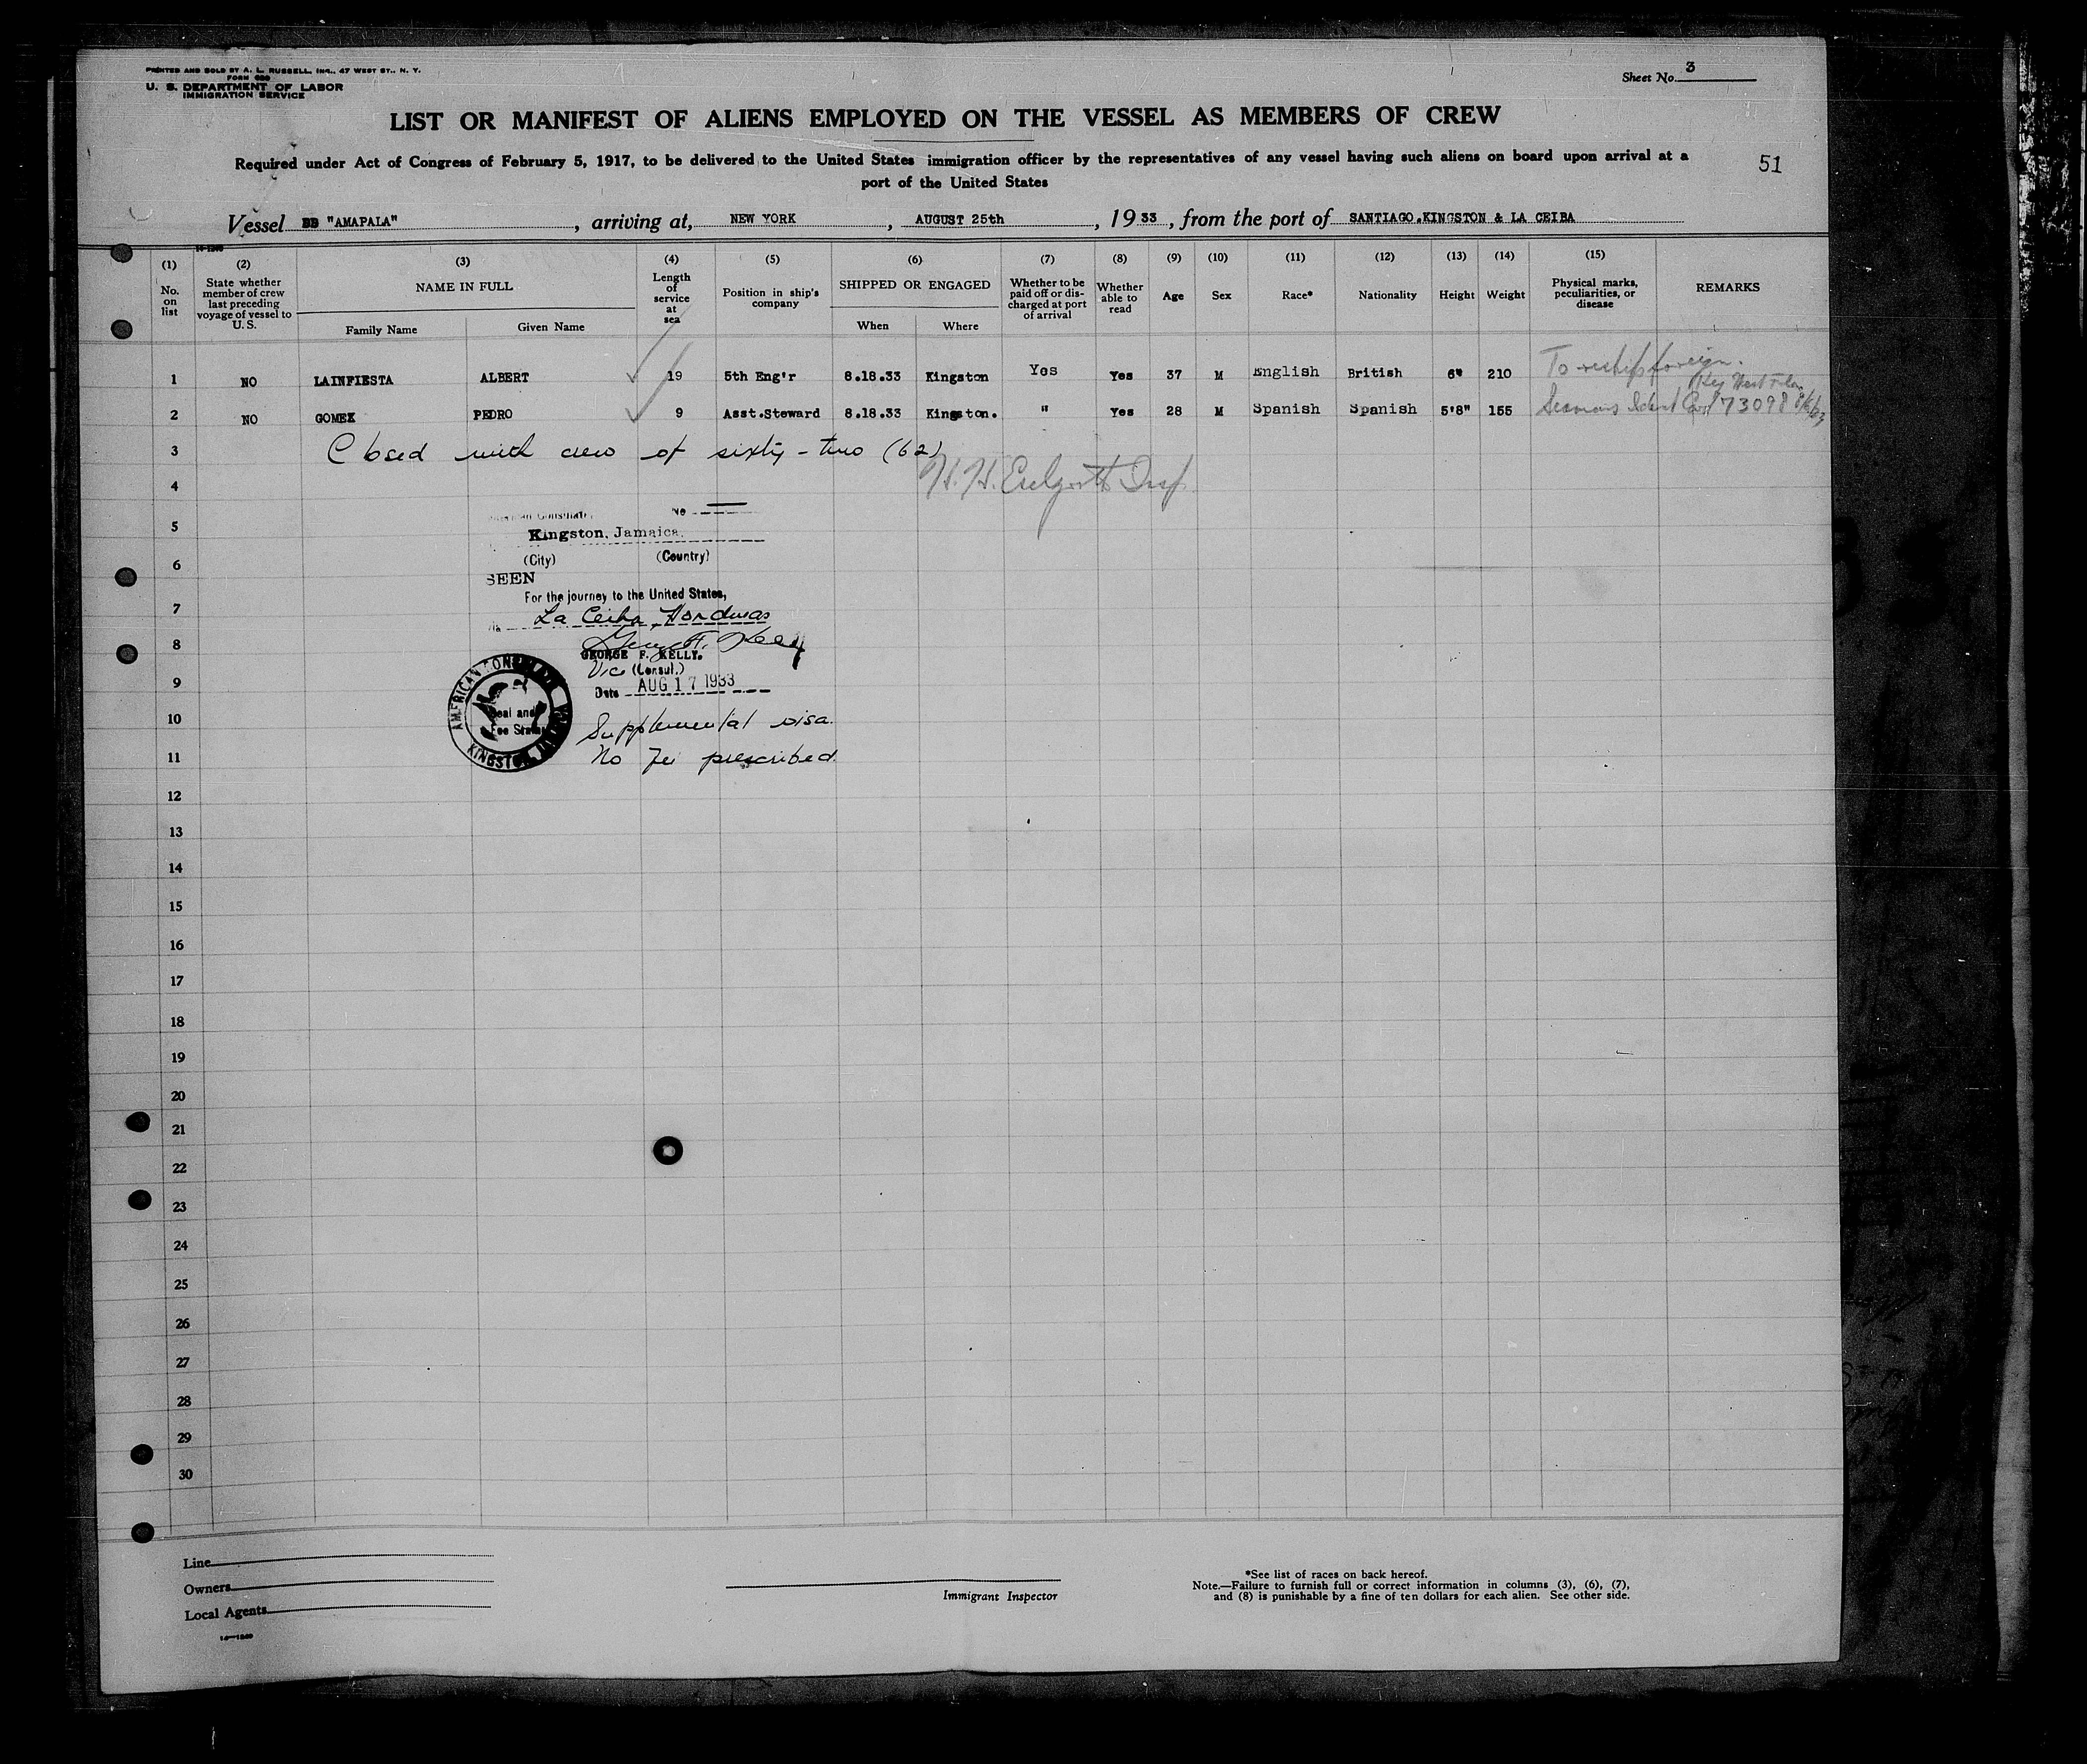 PRINTED AND SOLD BY A. L. RUSSELL, INC., 47 WEST ST., N. Y.
FORM 689
U. S. DEPARTMENT OF LABOR
IMMIGRATION SERVICE
Sheet No. 3
LIST OR MANIFEST OF ALIENS EMPLOYED ON THE VESSEL AS MEMBERS OF CREW
Required under Act of Congress of February 5, 1917, to be delivered to the United States immigration officer by the representatives of any vessel having such aliens on board upon arrival at a
port of the United States
51
Vessel "AMAPALA", arriving at, NEW YORK, AUGUST 25th, 1933, from the port of SANTIAGO.KINGSTON & LA CEIBA
(1) No. on list
(2) State whether member of crew last preceding voyage of vessel to U. S.
(3) NAME IN FULL Family Name Given Name
(4) Length of service at sea
(5) Position in ship's company
(6) SHIPPED OR ENGAGED When Where
(7) Whether to be paid off or discharged at port of arrival
(8) Whether able to read
(9) Age
(10) Sex
(11) Race*
(12) Nationality
(13) Height
(14) Weight
(15) Physical marks, peculiarities, or disease
REMARKS
1 NO LAINFIESTA ALBERT 19 5th Eng'r 8.18.33 Kingston Yes Yes 37 M English British 6" 210 To reship foreign.
Key West Fla
2 NO GOMEX PEDRO 9 Asst.Steward 8.18.33 Kingston. " Yes 28 M Spanish Spanish 5'8" 155 Seamans Ident Card 73098
3 Closed with crew of sixty-two (62)
4 H. H. Insp.
American Consulate No
5 Kingston, Jamaica.
(City) (Country)
6
SEEN
For the journey to the United States,
7 via La Ceiba, Honduras
8 Geo. F. Kelly
GEORGE F. KELLY.
Vice (Consul.)
9 Date AUG 17 1933
AMERICAN CONSULATE KINGSTON
Seal and
Fee Stamp
10 Supplemental visa.
11 No Fee prescribed.
12
13
14
15
16
17
18
19
20
21
22
23
24
25
26
27
28
29
30
Line
Owners
Local Agents
Immigrant Inspector
*See list of races on back hereof.
Note.—Failure to furnish full or correct information in columns (3), (6), (7),
and (8) is punishable by a fine of ten dollars for each alien. See other side.
14—1240